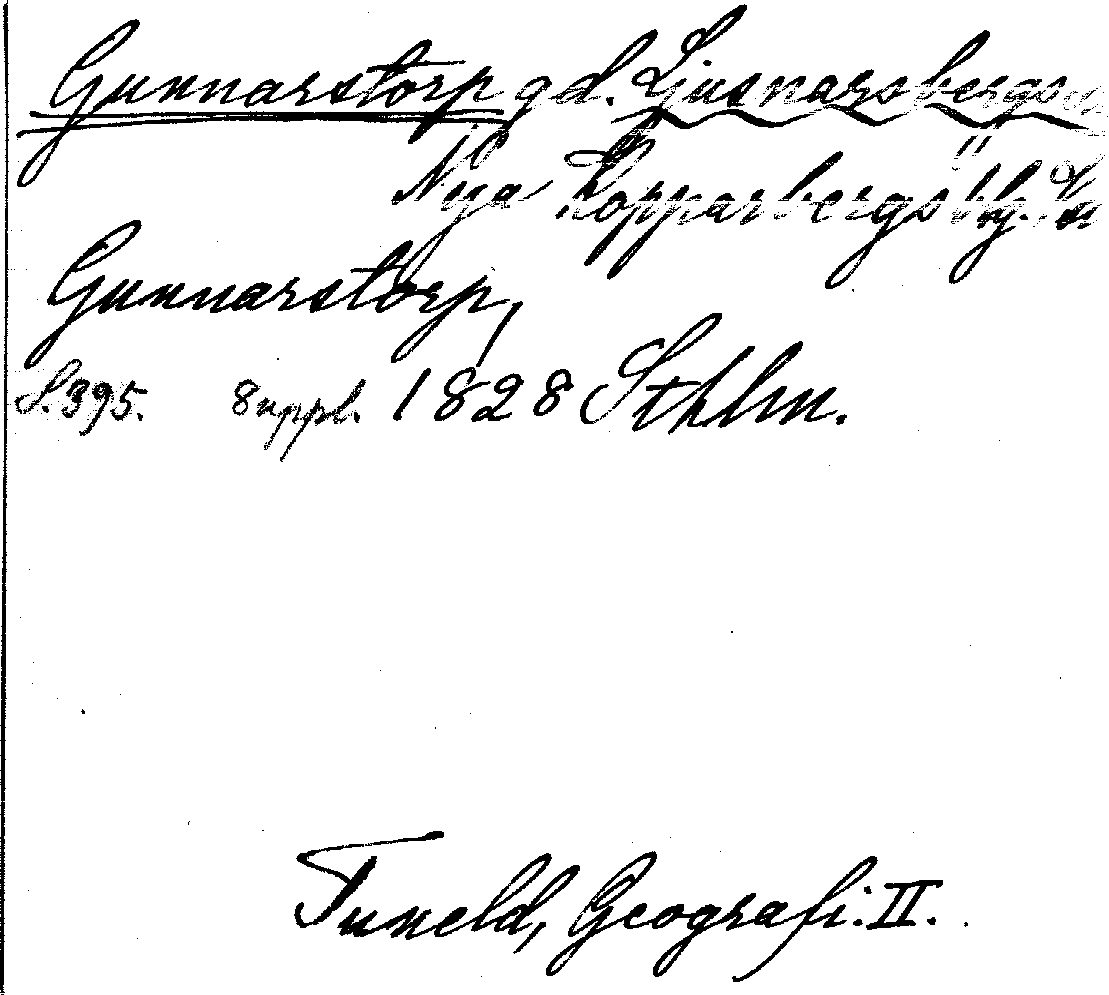 Gunnarstorp gd. Ljusnarsbergs
Nya Kopparbergs
Gunnarstorp,
S. 395. 8 uppl. 1828 Sthlm.
Tuneld, Geografi. II.